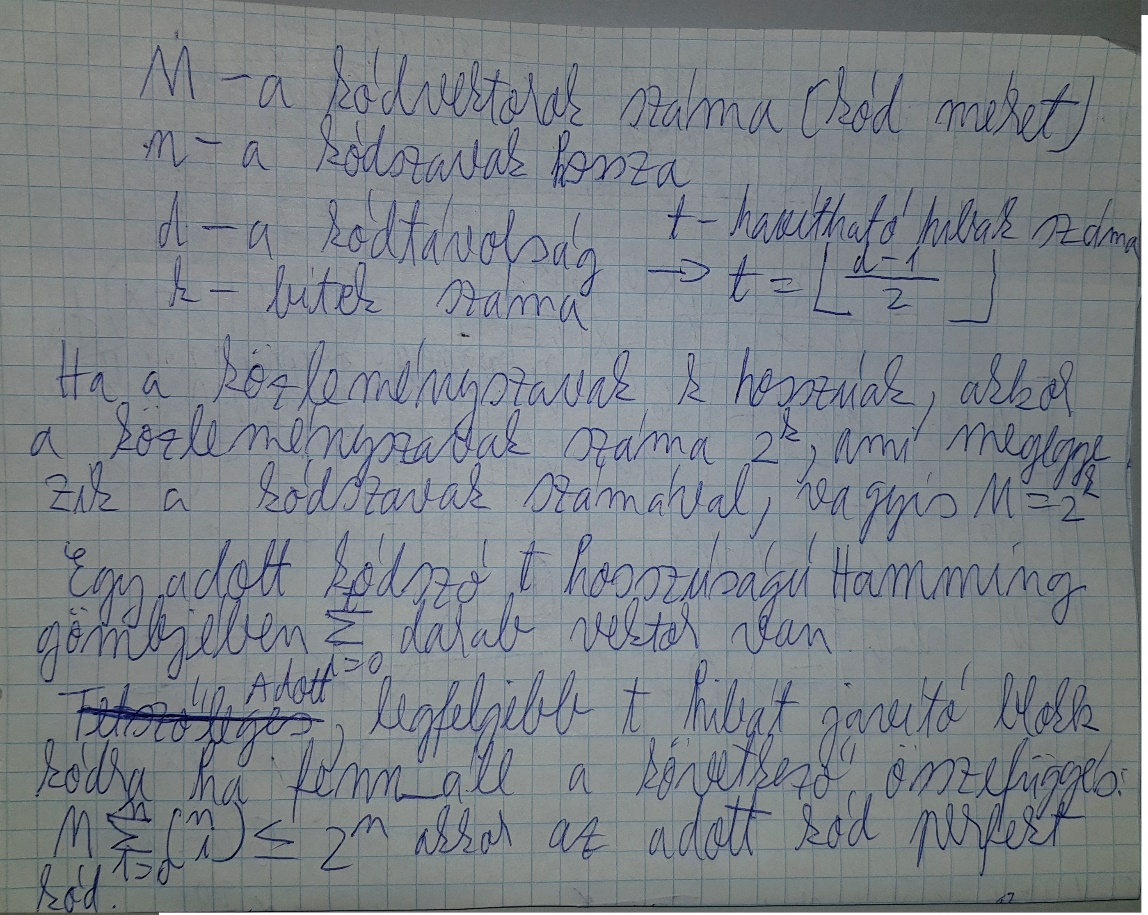 M – a kódvektorok száma (kód méret)
n – a kódszavak hossza
d – a kódtávolság t – havítható hibák száma
k – bitek száma → t = ⌊(d-1)/2⌋
Ha a közleményszavak k hosszúak, akkor
a közleményszavak száma 2^k, ami megegye
zik a kódszavak számával, vagyis M = 2^k
Egy adott kódszó t hosszúságú Hamming
gömbjében ∑_{i=0}^{t} darab vektor van
Adott
Tetszőleges, legfeljebb t hibát javító blokk
kódra ha fenn_áll a következő összefüggés:
M ∑_{i=0}^{n} (n i) ≤ 2^n akkor az adott kód perfekt
kód.